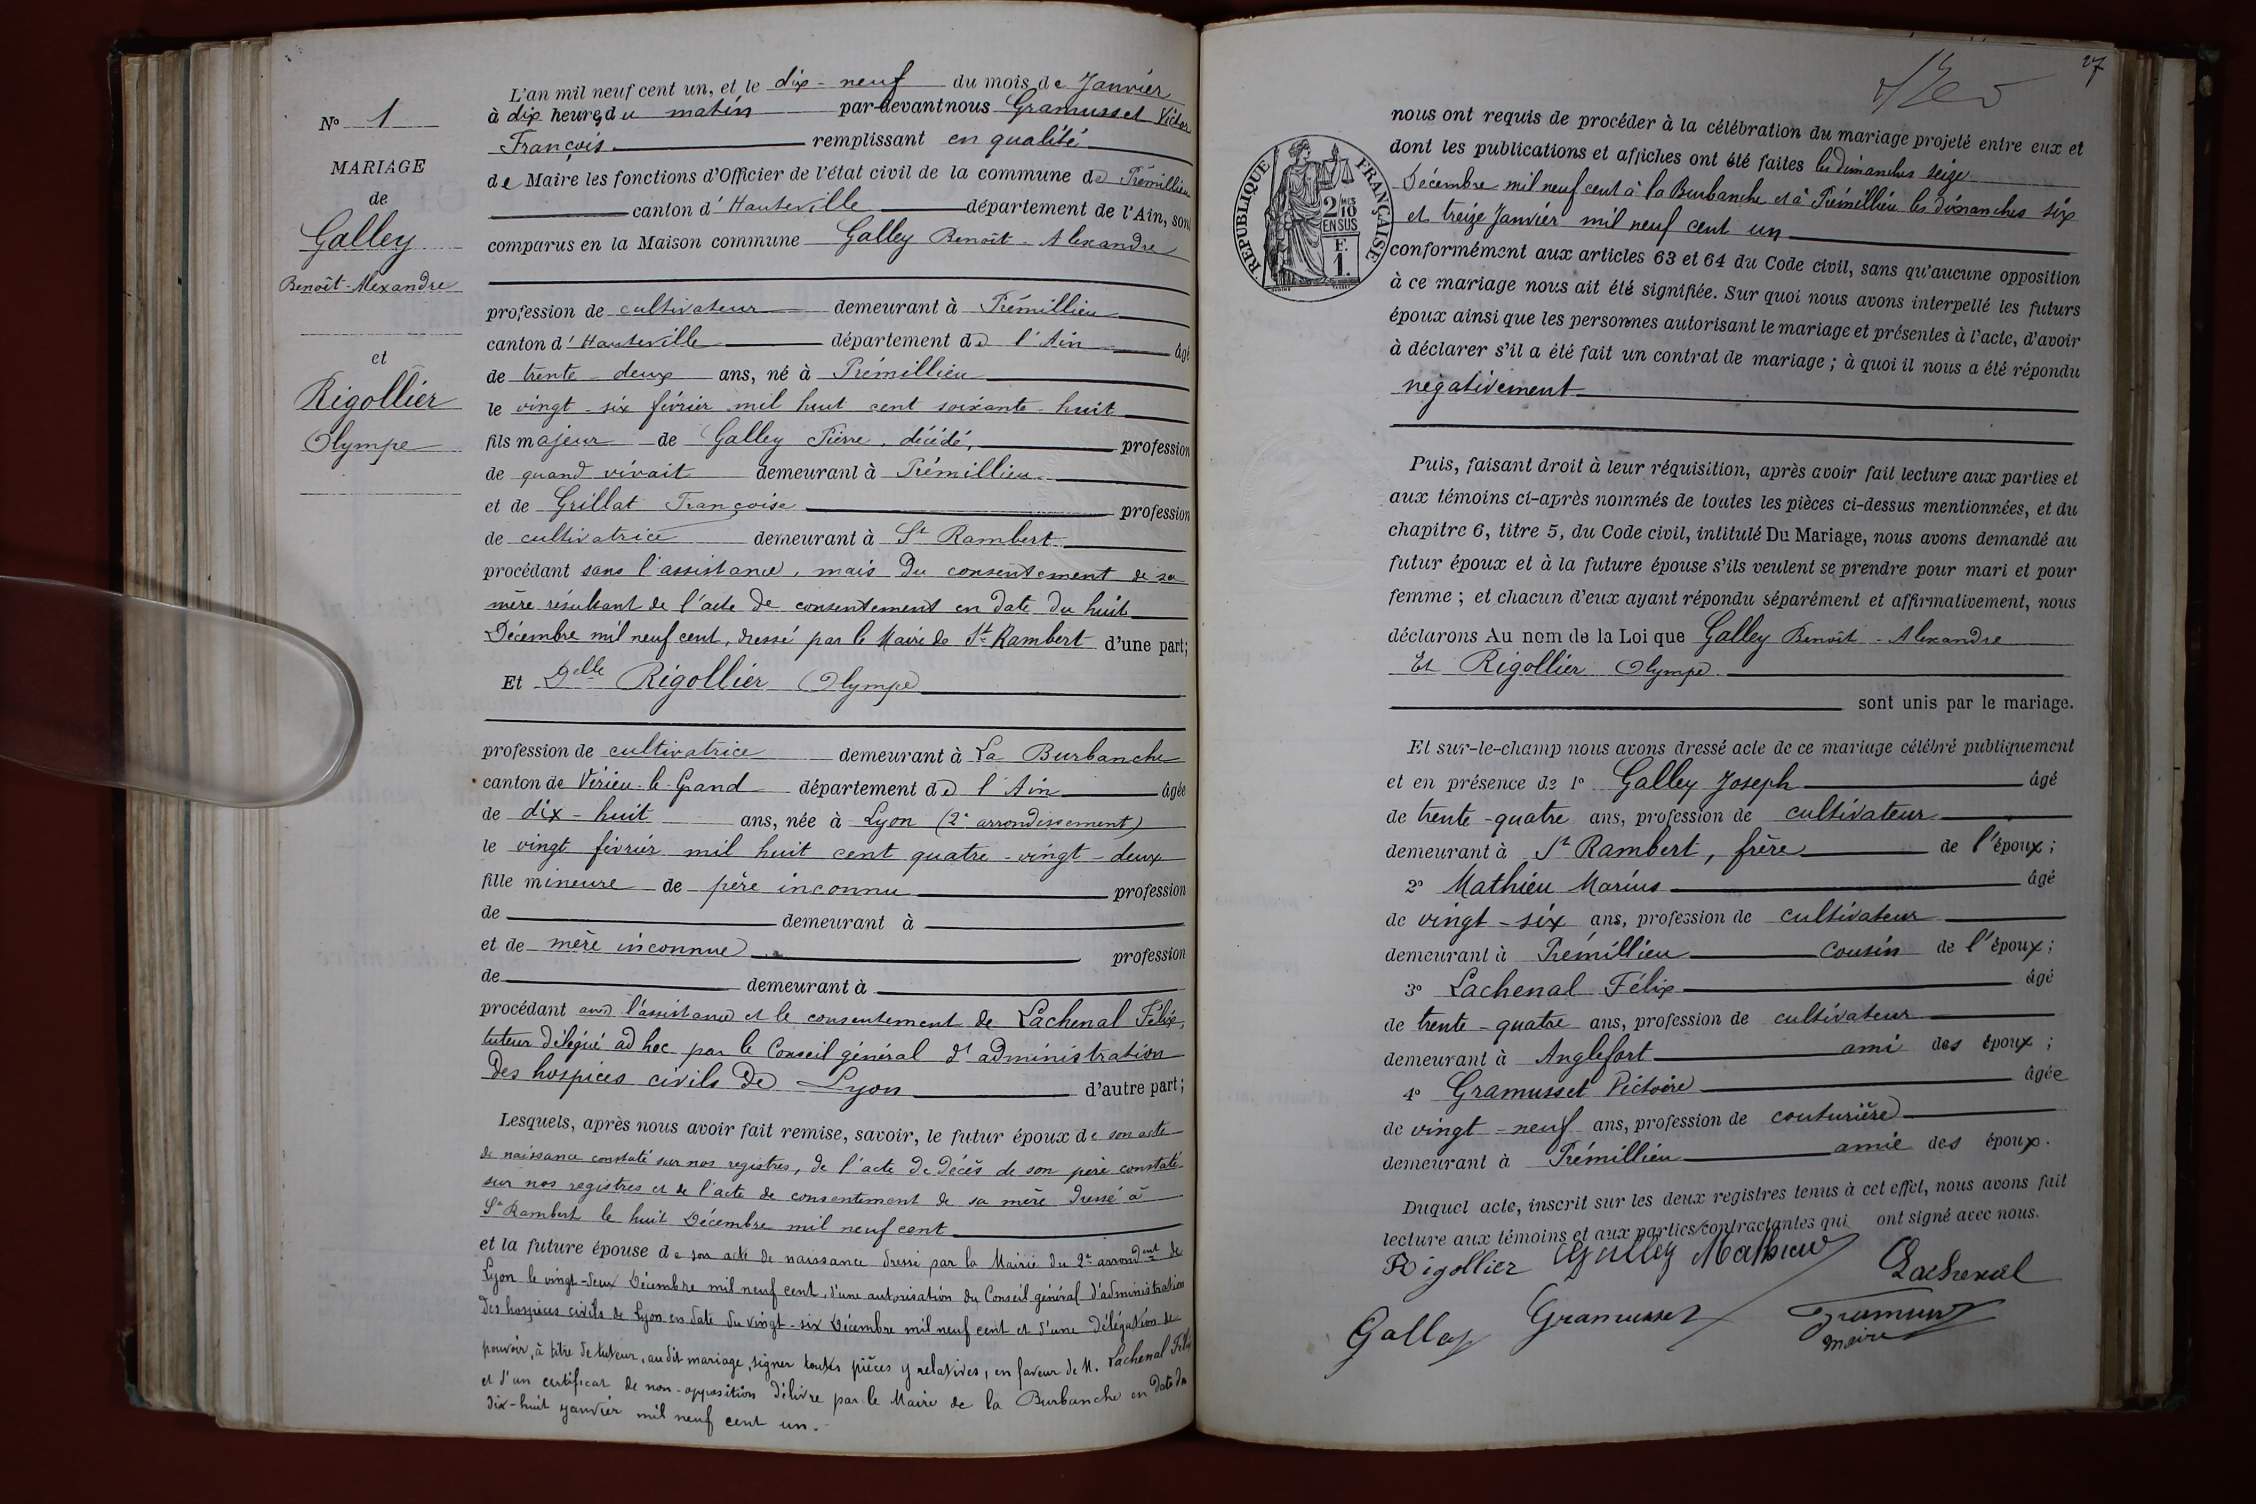 N° 1
MARIAGE
de
Galley
Benoît-Alexandre
et
Rigollier
Olympe
L'an mil neuf cent un, et le dix-neuf du mois de Janvier
à dix heures du matin par-devant nous Gramusset Victor
François remplissant en qualité
de Maire les fonctions d'Officier de l'état civil de la commune de Prémillieu
canton d'Hauteville département de l'Ain, sont
comparus en la Maison commune Galley Benoît-Alexandre
profession de cultivateur demeurant à Prémillieu
canton d'Hauteville département de l'Ain âgé
de trente-deux ans, né à Prémillieu
le vingt-six février mil huit cent soixante-huit
fils majeur de Galley Pierre, décédé, profession
de quand vivait demeurant à Prémillieu
et de Grillat Françoise profession
de cultivatrice demeurant à St Rambert
procédant sans l'assistance, mais du consentement de sa
mère résultant de l'acte de consentement en date du huit
Décembre mil neuf cent, dressé par le Maire de St Rambert d'une part;
Et Delle Rigollier Olympe
profession de cultivatrice demeurant à La Burbanche
canton de Virieu-le-Grand département de l'Ain âgée
de dix-huit ans, née à Lyon (2e arrondissement)
le vingt février mil huit cent quatre-vingt-deux
fille mineure de père inconnu profession
de demeurant à
et de mère inconnue profession
de demeurant à
procédant avec l'assistance et le consentement de Lachenal Félix,
tuteur délégué ad hoc par le Conseil général d'administration
des hospices civils de Lyon d'autre part;
Lesquels, après nous avoir fait remise, savoir, le futur époux de son acte
de naissance constaté sur nos registres, de l'acte de décès de son père constaté
sur nos registres et de l'acte de consentement de sa mère dressé à
St Rambert le huit Décembre mil neuf cent
et la future épouse de son acte de naissance dressé par la Mairie du 2e arrondent de
Lyon le vingt-deux Décembre mil neuf cent, d'une autorisation du Conseil général d'administration
des hospices civils de Lyon en date du vingt-six Décembre mil neuf cent et d'une délégation de
pouvoir, à titre de tuteur, audit mariage, signer toutes pièces y relatives, en faveur de M. Lachenal Félix
et d'un certificat de non-opposition délivré par le Maire de la Burbanche en date du
dix-huit janvier mil neuf cent un.
27
RÉPUBLIQUE FRANÇAISE
2/10
EN SUS
F.
1.
nous ont requis de procéder à la célébration du mariage projeté entre eux et
dont les publications et affiches ont été faites les dimanches seize
Décembre mil neuf cent à la Burbanche et à Prémillieu les dimanches six
et treize Janvier mil neuf cent un
conformément aux articles 63 et 64 du Code civil, sans qu'aucune opposition
à ce mariage nous ait été signifiée. Sur quoi nous avons interpellé les futurs
époux ainsi que les personnes autorisant le mariage et présentes à l'acte, d'avoir
à déclarer s'il a été fait un contrat de mariage; à quoi il nous a été répondu
négativement
Puis, faisant droit à leur réquisition, après avoir fait lecture aux parties et
aux témoins ci-après nommés de toutes les pièces ci-dessus mentionnées, et du
chapitre 6, titre 5, du Code civil, intitulé Du Mariage, nous avons demandé au
futur époux et à la future épouse s'ils veulent se prendre pour mari et pour
femme; et chacun d'eux ayant répondu séparément et affirmativement, nous
déclarons Au nom de la Loi que Galley Benoît-Alexandre
Et Rigollier Olympe
sont unis par le mariage.
Et sur-le-champ nous avons dressé acte de ce mariage célébré publiquement
et en présence de 1° Galley Joseph âgé
de trente-quatre ans, profession de cultivateur
demeurant à St Rambert, frère de l'époux;
2° Mathieu Marius âgé
de vingt-six ans, profession de cultivateur
demeurant à Prémillieu cousin de l'époux;
3° Lachenal Félix âgé
de trente-quatre ans, profession de cultivateur
demeurant à Anglefort ami des époux;
4° Gramusset Victoire âgée
de vingt-neuf ans, profession de couturière
demeurant à Prémillieu amie des époux.
Duquel acte, inscrit sur les deux registres tenus à cet effet, nous avons fait
lecture aux témoins et aux parties contractantes qui ont signé avec nous.
Rigollier Galley Mathieu Lachenal
Galley Gramusset Gramusset
Maire